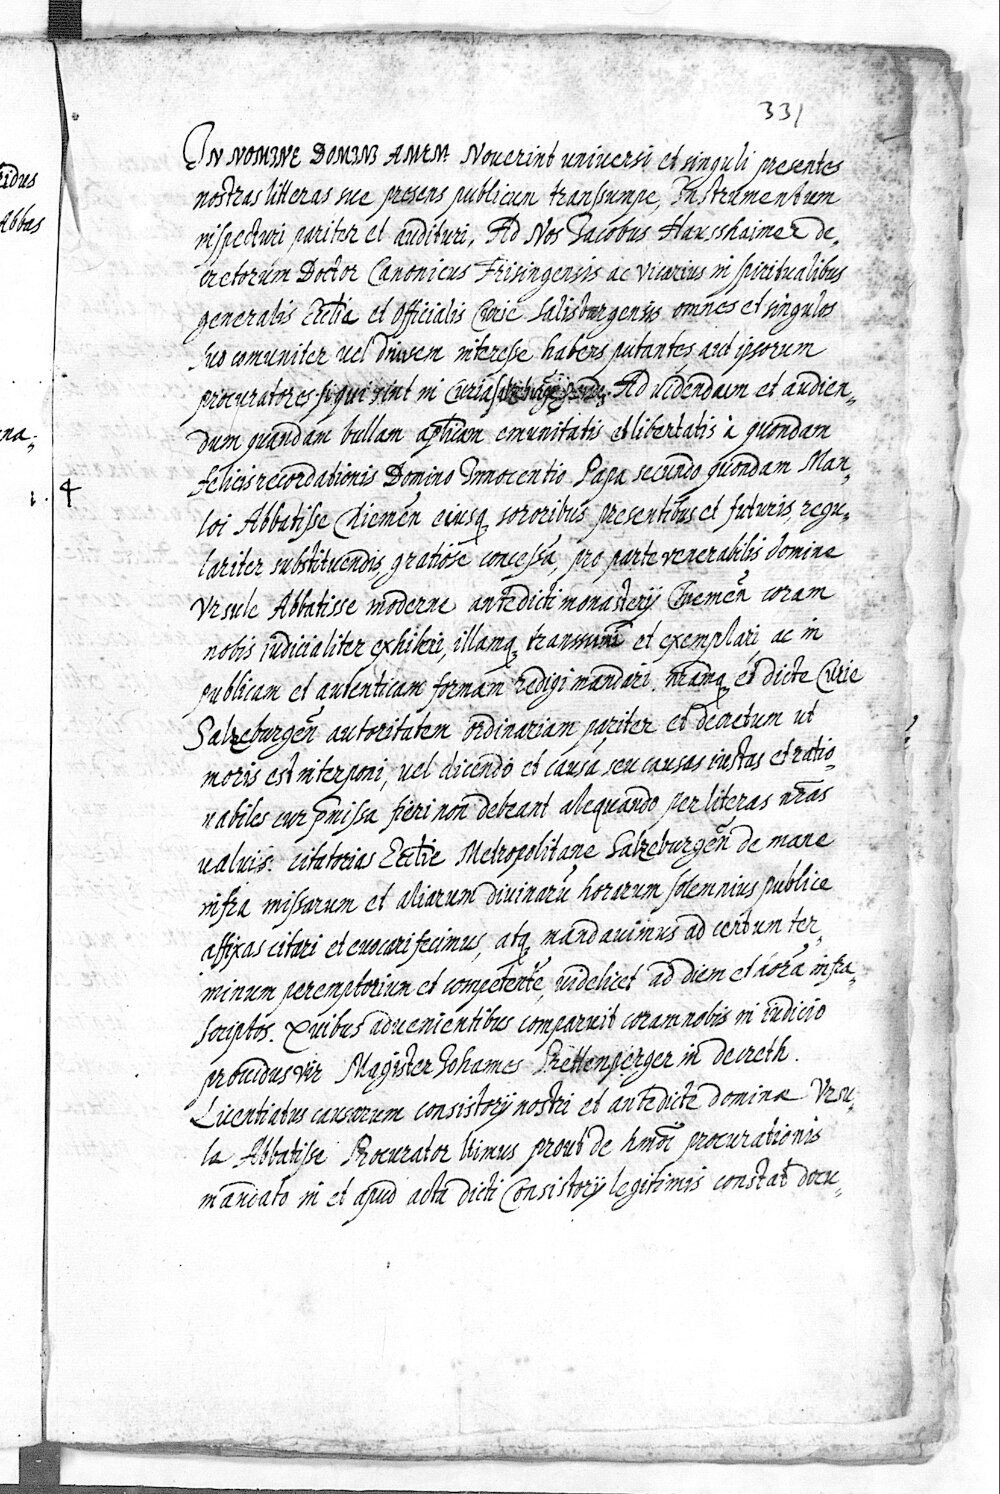 331
IN NOMINE DOMINI AMEM. Noverint universi et singuli presentes
nostras litteras sue presens publicum transsumpe, Instrumentum
inspecturi pariter et audituri, Ad Nos Jacobus Haussshaimer de,
cretorum Doctor Canonicus Frisingensis ac vicarius in spiritualibus
generalis Ecclie et Officialis Curie Salisburgensis omnes et singulos
suo comuniter vel divisem interesse habens putantes aut ipsorum
procuratores si qui sint in Curia Ad videndam et audien,,
dum quandam bullam aplicam emunitatis et libertatis a quondam
felicis recordationis Domino Innocentio Papa secundo quondam Mar,,
loi Abbatisse Chiemen eiusq sororibus presentibus et futuris, regu,,
lariter substituendis gratiose concessa, pro parte venerabilis domine
Ursule Abbatisse moderne antedicti monasterij Chiemen coram
nobis iudicialiter exhiberi, illamq transsumi et exemplari, ac in
publicam et autenticam formam redigi mandari. nramq et dicte Curie
Salzeburgen autoritatem ordinariam pariter et decretum ut
moris est interponi, vel dicendo et causa seu causas iustas et ratio,,
nabiles cur pmissa fieri non debeant alequando per literas nras
valuis. citatorias Ecclie Metropolitane Salzeburgen de mane
infra missarum et aliarum divinaru horarum solemnius publice
affixas citari et evocari fecimus, atq mandavimus ad certum ter,,
minum peremptorium et competente, videlicet ad diem et hora infra,,
scriptos. Quibus advenientibus comparuit coram nobis in iudicio
providus vir Magister Johames Rettenperger in decreth.
Licentiatus causarum consistorij nostri et antedicte domine Ursu,,
la Abbatisse Procurator ltimus prout de hmoi procurationis
mandato in et apud acta dicti Consistorij legitimis constat docu,,
ridus
Abbas
na;
i. 4